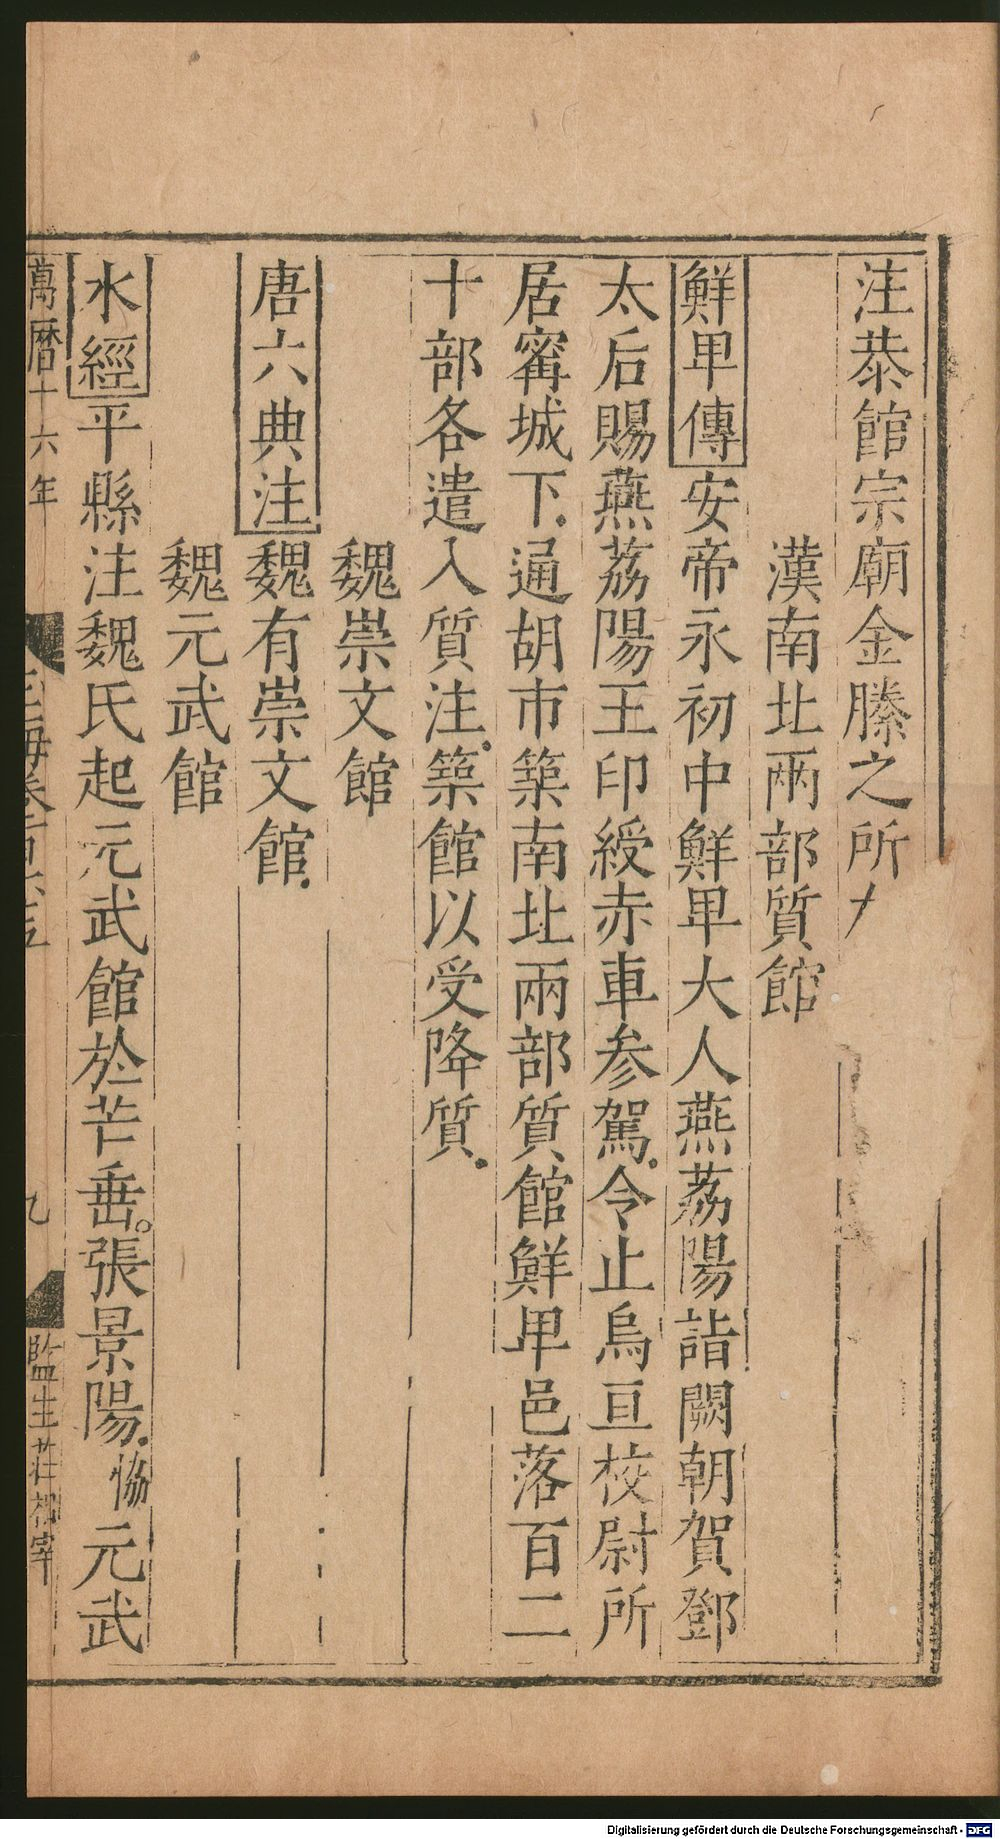 注㳟館宗廟金縢之所
漢南北兩部質館
鮮卑傳安帝永初中鮮卑大人燕荔陽詣闕朝賀鄧
太后賜燕荔陽王印綬赤車参駕令止烏亘校尉所
居甯城下通胡市築南北兩部質館鮮卑邑落百二
十部各遣入質注築館以受降質
魏崇文館
唐六典注魏有崇文館
魏元武館
水經平縣注魏氏起元武館於芒垂張景陽恊元武
萬曆十六年
玉海卷百六十五
九
監生莊
Digitalisierung gefördert durch die Deutsche Forschungsgemeinschaft - DFG